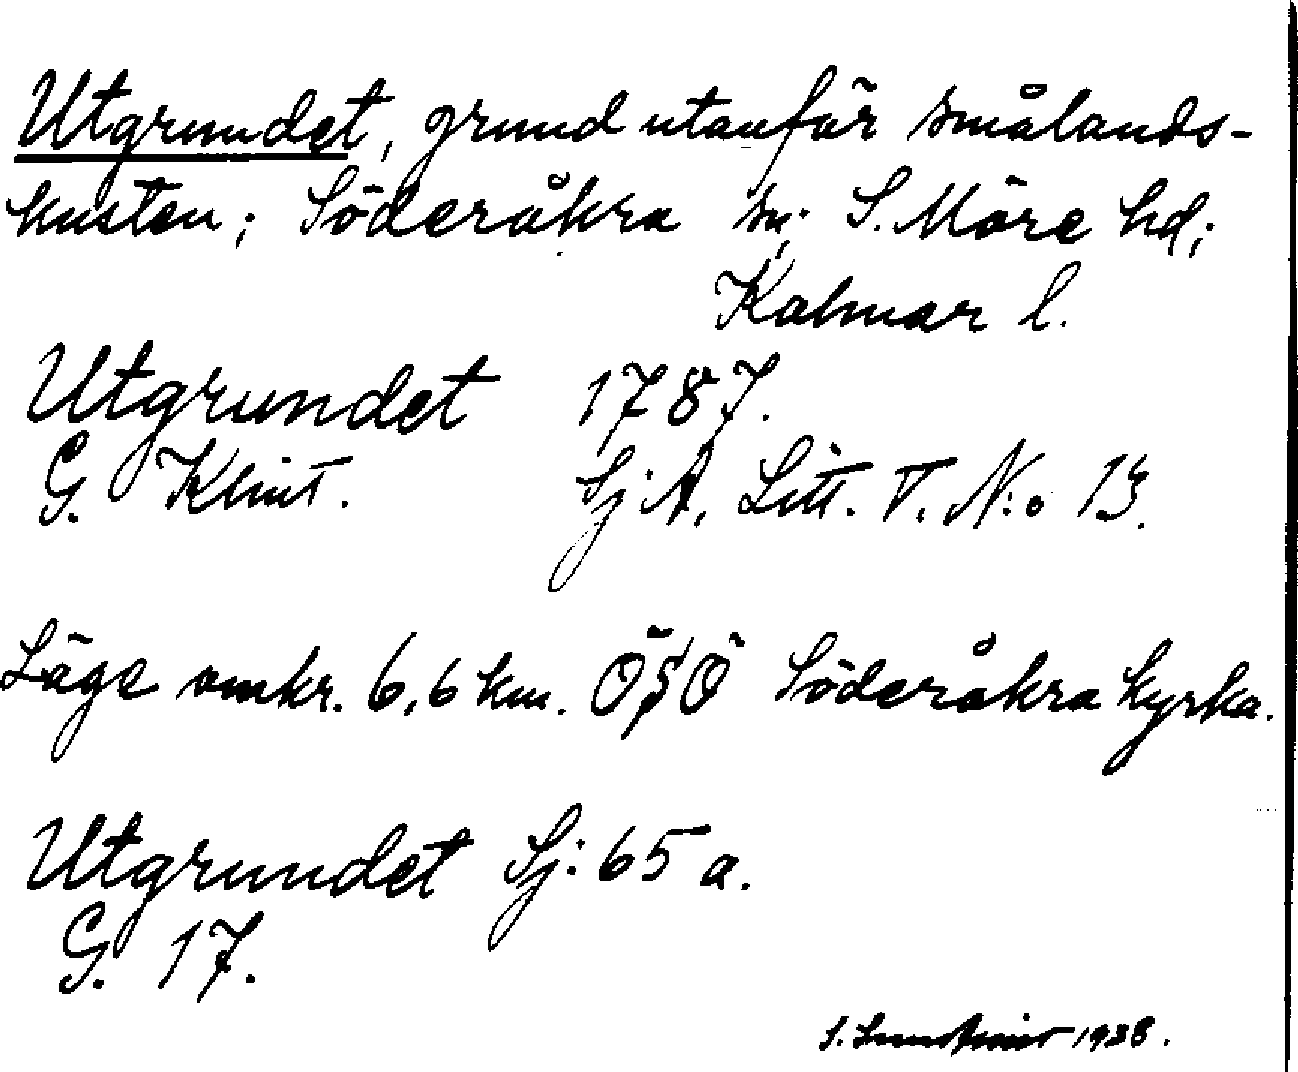 Utgrundet, grund utanför smålands-
kusten; Söderåkra sn; S. Möre hd;
Kalmar l.
Utgrundet 1787.
G. Klint. Sj:A, Litt. V. N:o 13.
Läge omkr. 6,6 km. ÖSÖ Söderåkra kyrka.
Utgrundet Sj: 65 a.
G. 17.
S. 1938.